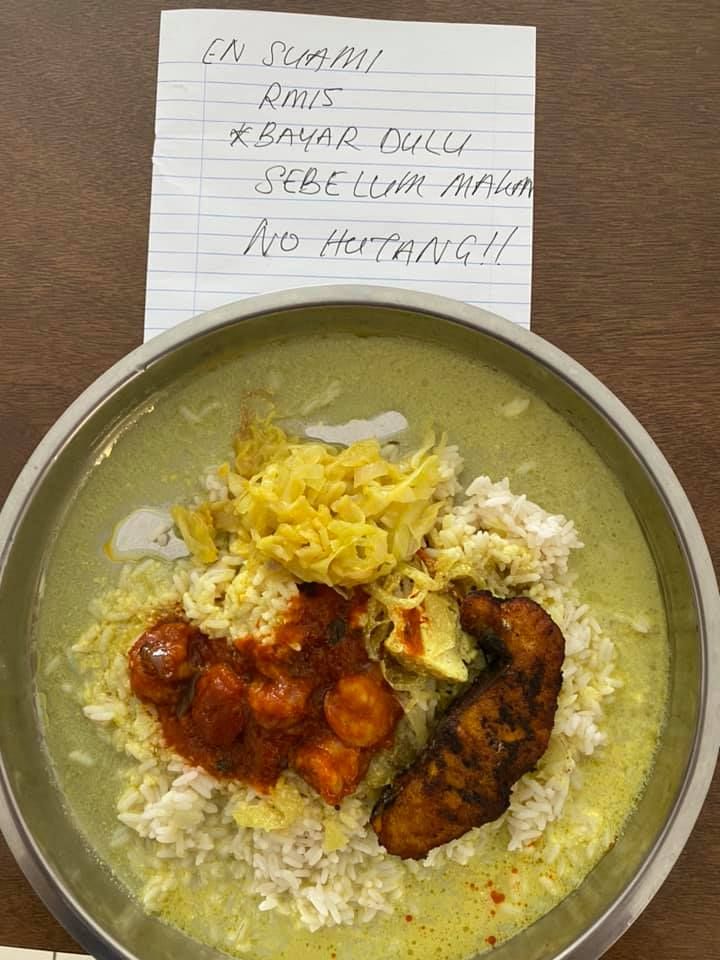 EN SUAMI
RM15
*BAYAR DULU
SEBELUM MAKAN
NO HUTANG!!